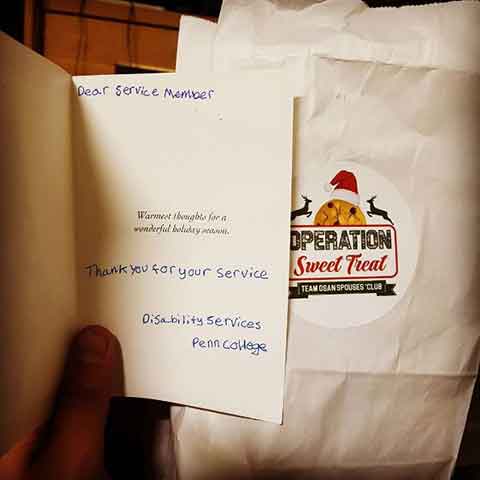 Dear Service Member
Warmest thoughts for a
wonderful holiday season.
Thank you for your service
Disability Services
Penn College
OPERATION
Sweet Treat
TEAM OSAN SPOUSES' CLUB